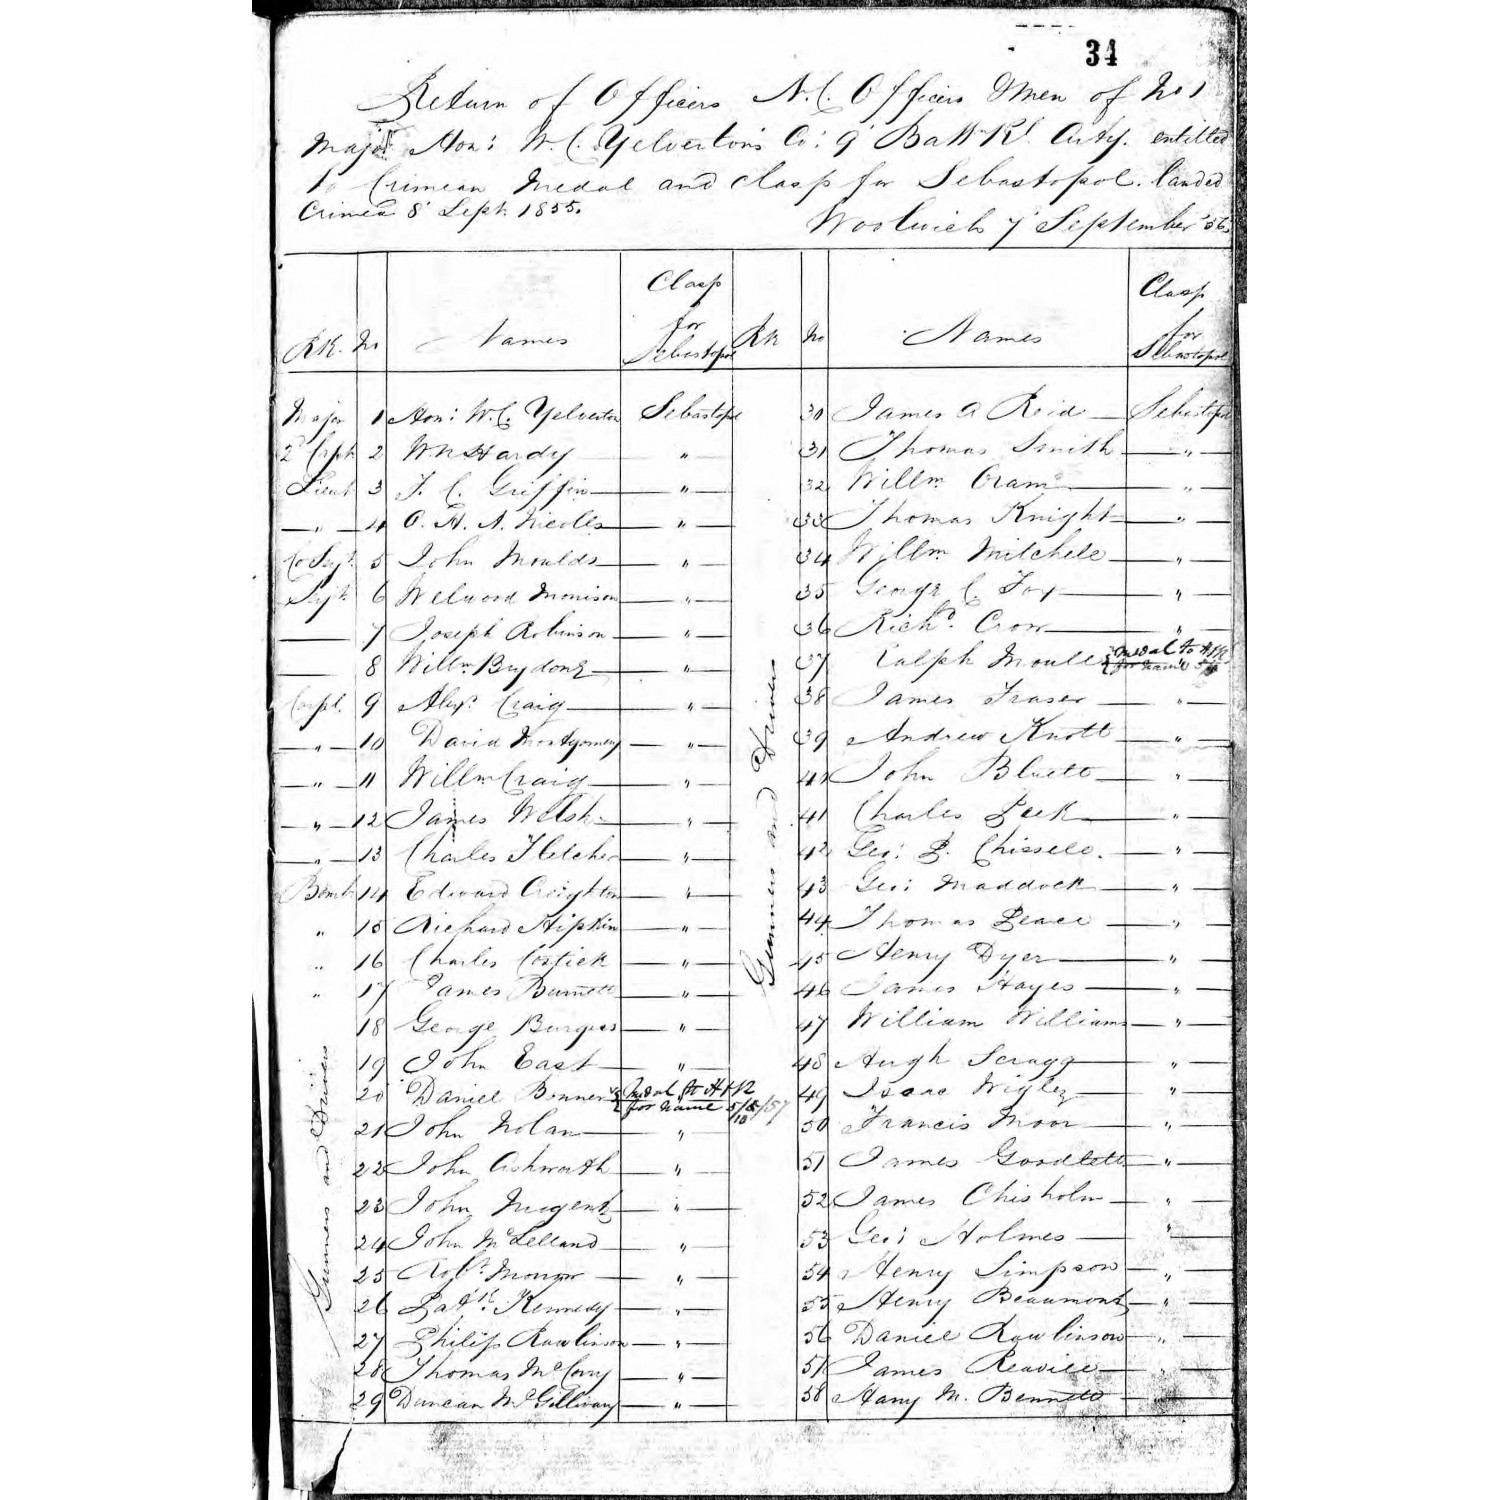 34
Return of Officers N.C. Officers & Men of No 1
Major Hon: W.C. Yelverton's Co: 9 Batt Rl. Arty. entitled
to Crimean Medal and clasp for Sebastopol. landed
Crimea 8 Sept 1855.
Woolwich 7 September '56.
RK. No Names Clasp for Sebastopol Rk No Names Clasp for Sebastopol
Major 1 Hon: W.C. Yelverton Sebastopol
2d Capt 2 Wm Hardy "
Lieut 3 F. C. Griffin "
" 4 O. H. A. Nicolls "
Co Sejt. 5 John Moulds "
Sejt. 6 Welwood Morrison "
7 Joseph Robinson "
8 Willm Brydone "
Corpl. 9 Alexr. Craig "
" 10 David Montgomery "
" 11 Willm Craig "
" 12 James Welsh "
" 13 Charles Fletcher "
Bomb 14 Edward Creighton "
" 15 Richard Hipkin "
" 16 Charles Costick "
" 17 James Burnett "
Gunners and Drivers
18 George Burgess "
19 John East "
20 Daniel Bonner Medal to H
for name 5/5/57
10
21 John Nolan "
22 John Ashworth "
23 John Nugent "
24 John McLelland "
25 Robt.
26 Patk. Kennedy "
27 Philip Rawlinson "
28 Thomas McCorry "
29 Duncan McGillivary "
Gunners and Drivers
30 James A Reid Sebastopol
31 Thomas Smith "
32 Willm. "
33 Thomas Knight "
34 Willm Mitchell "
35 George C. Fox "
36 Richd. Crow "
37 Ralph Moull Medal to
for name
38 James Fraser "
39 Andrew Knott "
40 John Bluett "
41 Charles Peek "
42 Geo: P. Chissell. "
43 Geo: Maddock "
44 Thomas Peace "
45 Henry Dyer "
46 James Hayes "
47 William Williams "
48 Hugh Scragg "
49 Isaac Wigley "
50 Francis Moor "
51 James Goodlett "
52 James Chisholm "
53 Geo: Holmes "
54 Henry Simpson "
55 Henry Beaumont "
56 Daniel Rawlinson "
57 James Reavill "
58 Harry M. Bennett "